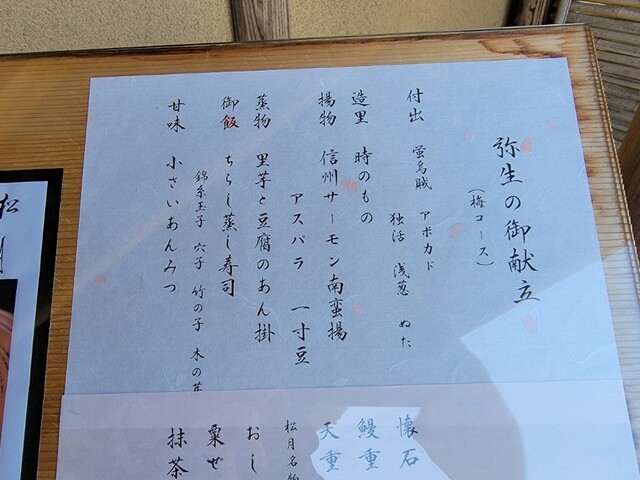 弥生の御献立
（梅コース）
付出　蛍烏賊　アボカド
独活　浅葱　ぬた
造里　時のもの
揚物　信州サーモン南蛮揚
アスパラ　一寸豆
蒸物　里芋と豆腐のあん掛
御飯　ちらし蒸し寿司
錦糸玉子　穴子　竹の子　木の芽
甘味　小さいあんみつ
懐石
鰻重
天重
松月名物
おし
粟ぜ
抹茶
松